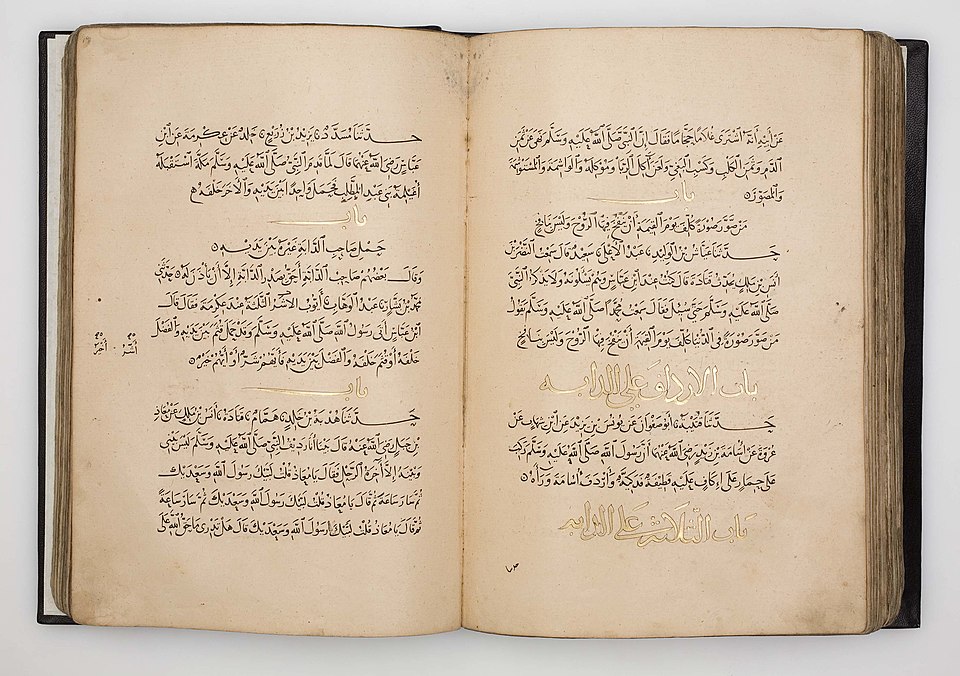 عن ابيه أنه اشترى غلاما حجاما فقال إن النبي صلى الله عليه وسلم نهى عن ثمن
الدم وثمن الكلب وكسب البغي ولعن آكل الربا وموكله والواشمة والمستوشمة
والمصور
باب
من صور صورة كلف يوم القيمة أن ينفخ فيها الروح وليس بنافخ
حدثنا عياش بن الوليد عبد الأعلى سعيد قال سمعت النضر بن
أنس بن ملك يحدث قتادة قال كنت عند ابن عباس وهم يسألونه ولا يذكر النبي
صلى الله عليه وسلم حتى سئل فقال سمعت محمدا صلى الله عليه وسلم يقول
من صور صورة في الدنيا كلف يوم القيمة أن ينفخ فيها الروح وليس بنافخ
باب الارداف على الدابه
حدثنا قتيبة أبو صفوان عن يونس بن يزيد عن ابن شهاب عن
عروة عن أسامة بن زيد رضي الله عنهما أن رسول الله صلى الله عليه وسلم ركب
على حمار على إكاف عليه قطيفة فدكية وأردف أسامة وراءه
باب الثلاثة على الدابه
حدثنا مسدد يزيد بن زريع خلد عن عكرمة عن ابن
عباس رضي الله عنهما قال لما قدم النبي صلى الله عليه وسلم مكة استقبله
أغيلمة بني عبد المطلب فحمل واحدا بين يديه والآخر خلفه
باب
حمل صاحب الدابة غيره بين يديه
وقال بعضهم صاحب الدابة أحق بصدر الدابة إلا أن يأذن له حدثني
محمد بن بشار عبد الوهاب أيوب الأشر الثلثة عند عكرمة فقال قال
ابن عباس أتى رسول الله صلى الله عليه وسلم وقد حمل قثم بين يديه والفضل
خلفه أو قثم خلفه والفضل بين يديه فأيهم شر أو أيهم خير
أشر
أخير
باب
حدثنا هدبة بن خلد همام قتادة أنس بن ملك عن معاذ
بن جبل رضي الله عنه قال بينا أنا رديف النبي صلى الله عليه وسلم ليس بيني
وبينه إلا آخرة الرحل فقال يا معاذ قلت لبيك رسول الله وسعديك
ثم سار ساعة ثم قال يا معاذ قلت لبيك رسول الله وسعديك ثم سار ساعة
ثم قال يا معاذ قلت لبيك رسول الله وسعديك قال هل تدري ما حق الله على